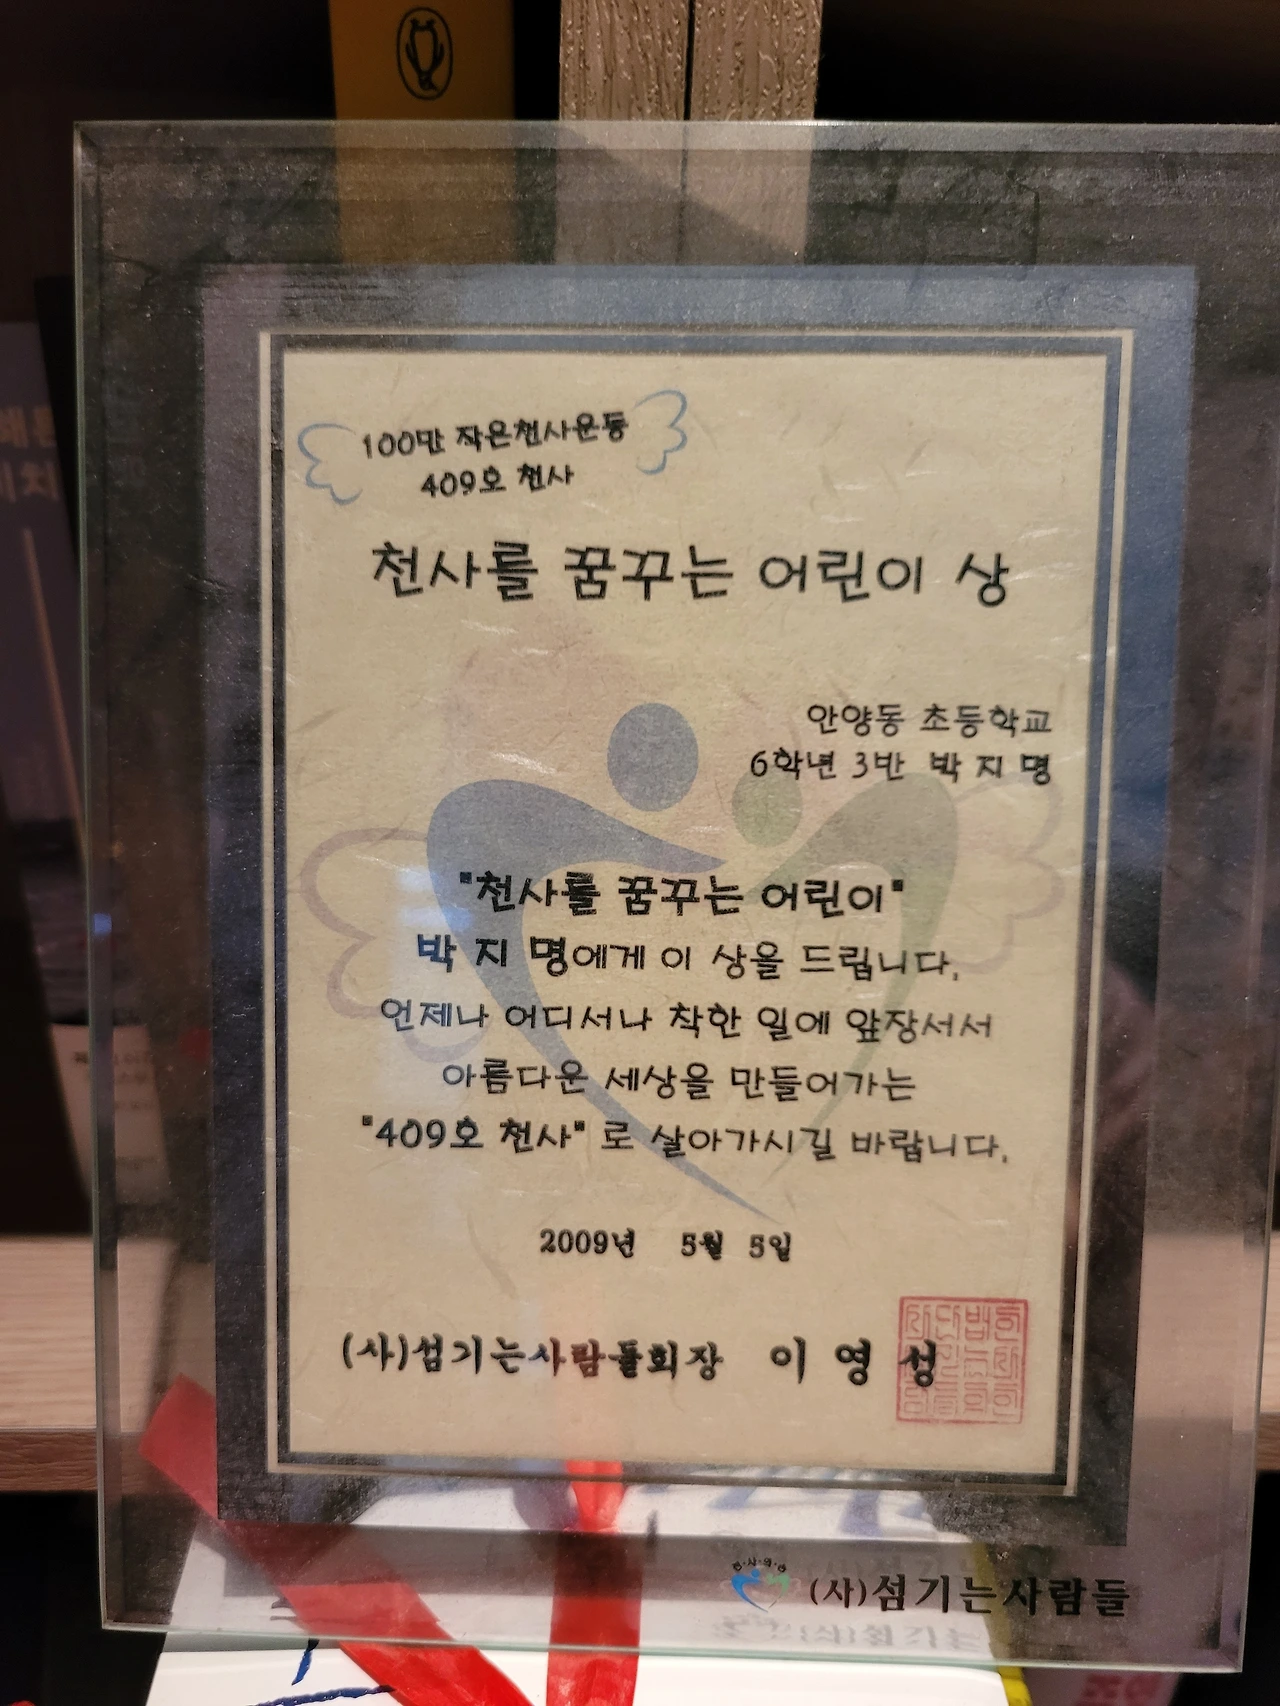 100만 작은천사운동
409호 천사
천사를 꿈꾸는 어린이 상
안양동 초등학교
6학년 3반 박 지 명
"천사를 꿈꾸는 어린이"
박 지 명에게 이 상을 드립니다.
언제나 어디서나 착한 일에 앞장서서
아름다운 세상을 만들어가는
"409호 천사" 로 살아가시길 바랍니다.
2009년 5월 5일
(사)섬기는사람들회장 이 영 성
(사)섬기는사람들